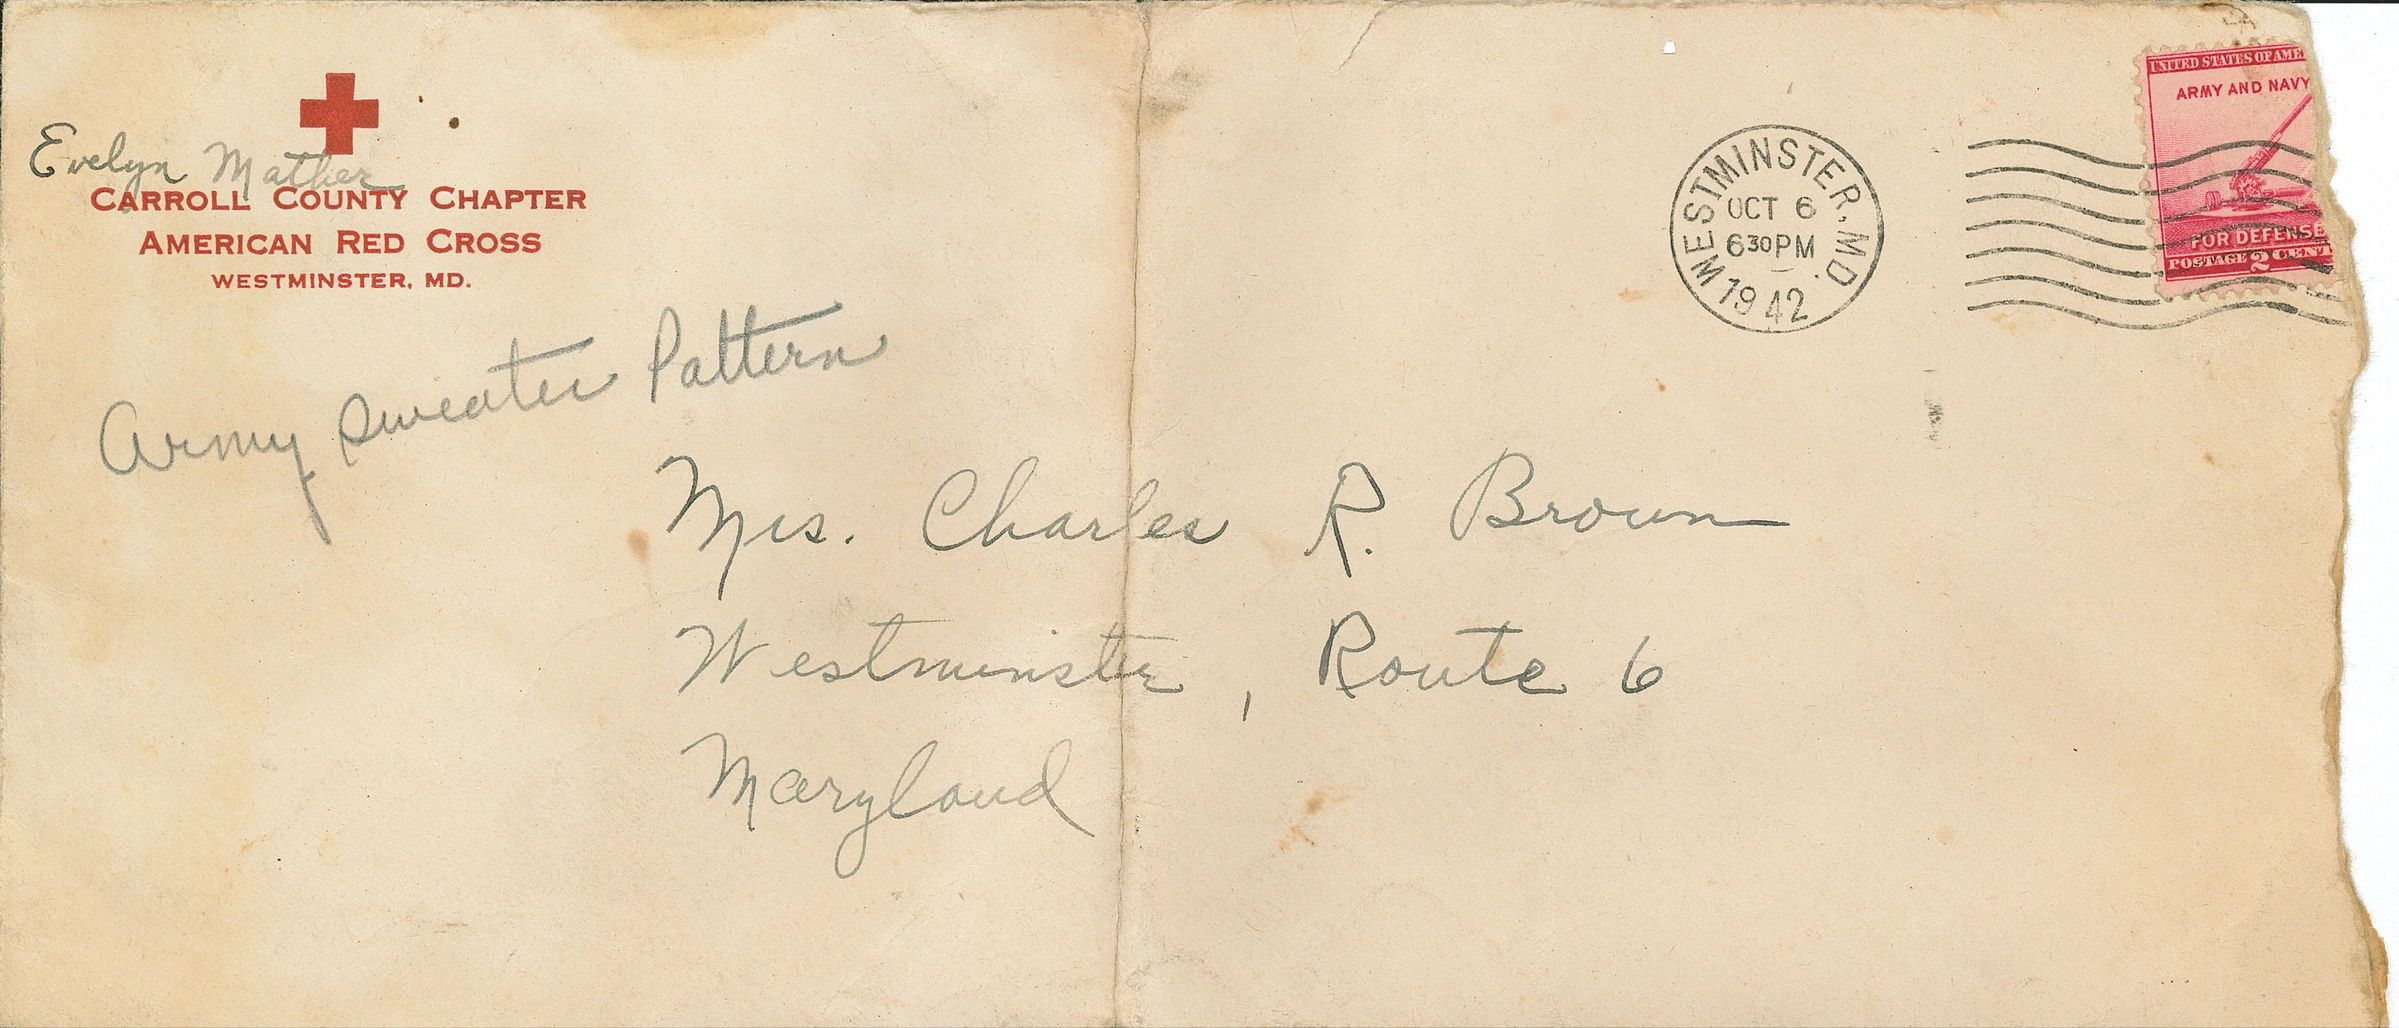 Evelyn Mather
CARROLL COUNTY CHAPTER
AMERICAN RED CROSS
WESTMINSTER, MD.
Army Sweater Pattern
WESTMINSTER, MD.
OCT 6
630PM
1942
UNITED STATES OF AME
ARMY AND NAVY
FOR DEFENSE
POSTAGE 2 CENT
Mrs. Charles R. Brown
Westminster, Route 6
Maryland